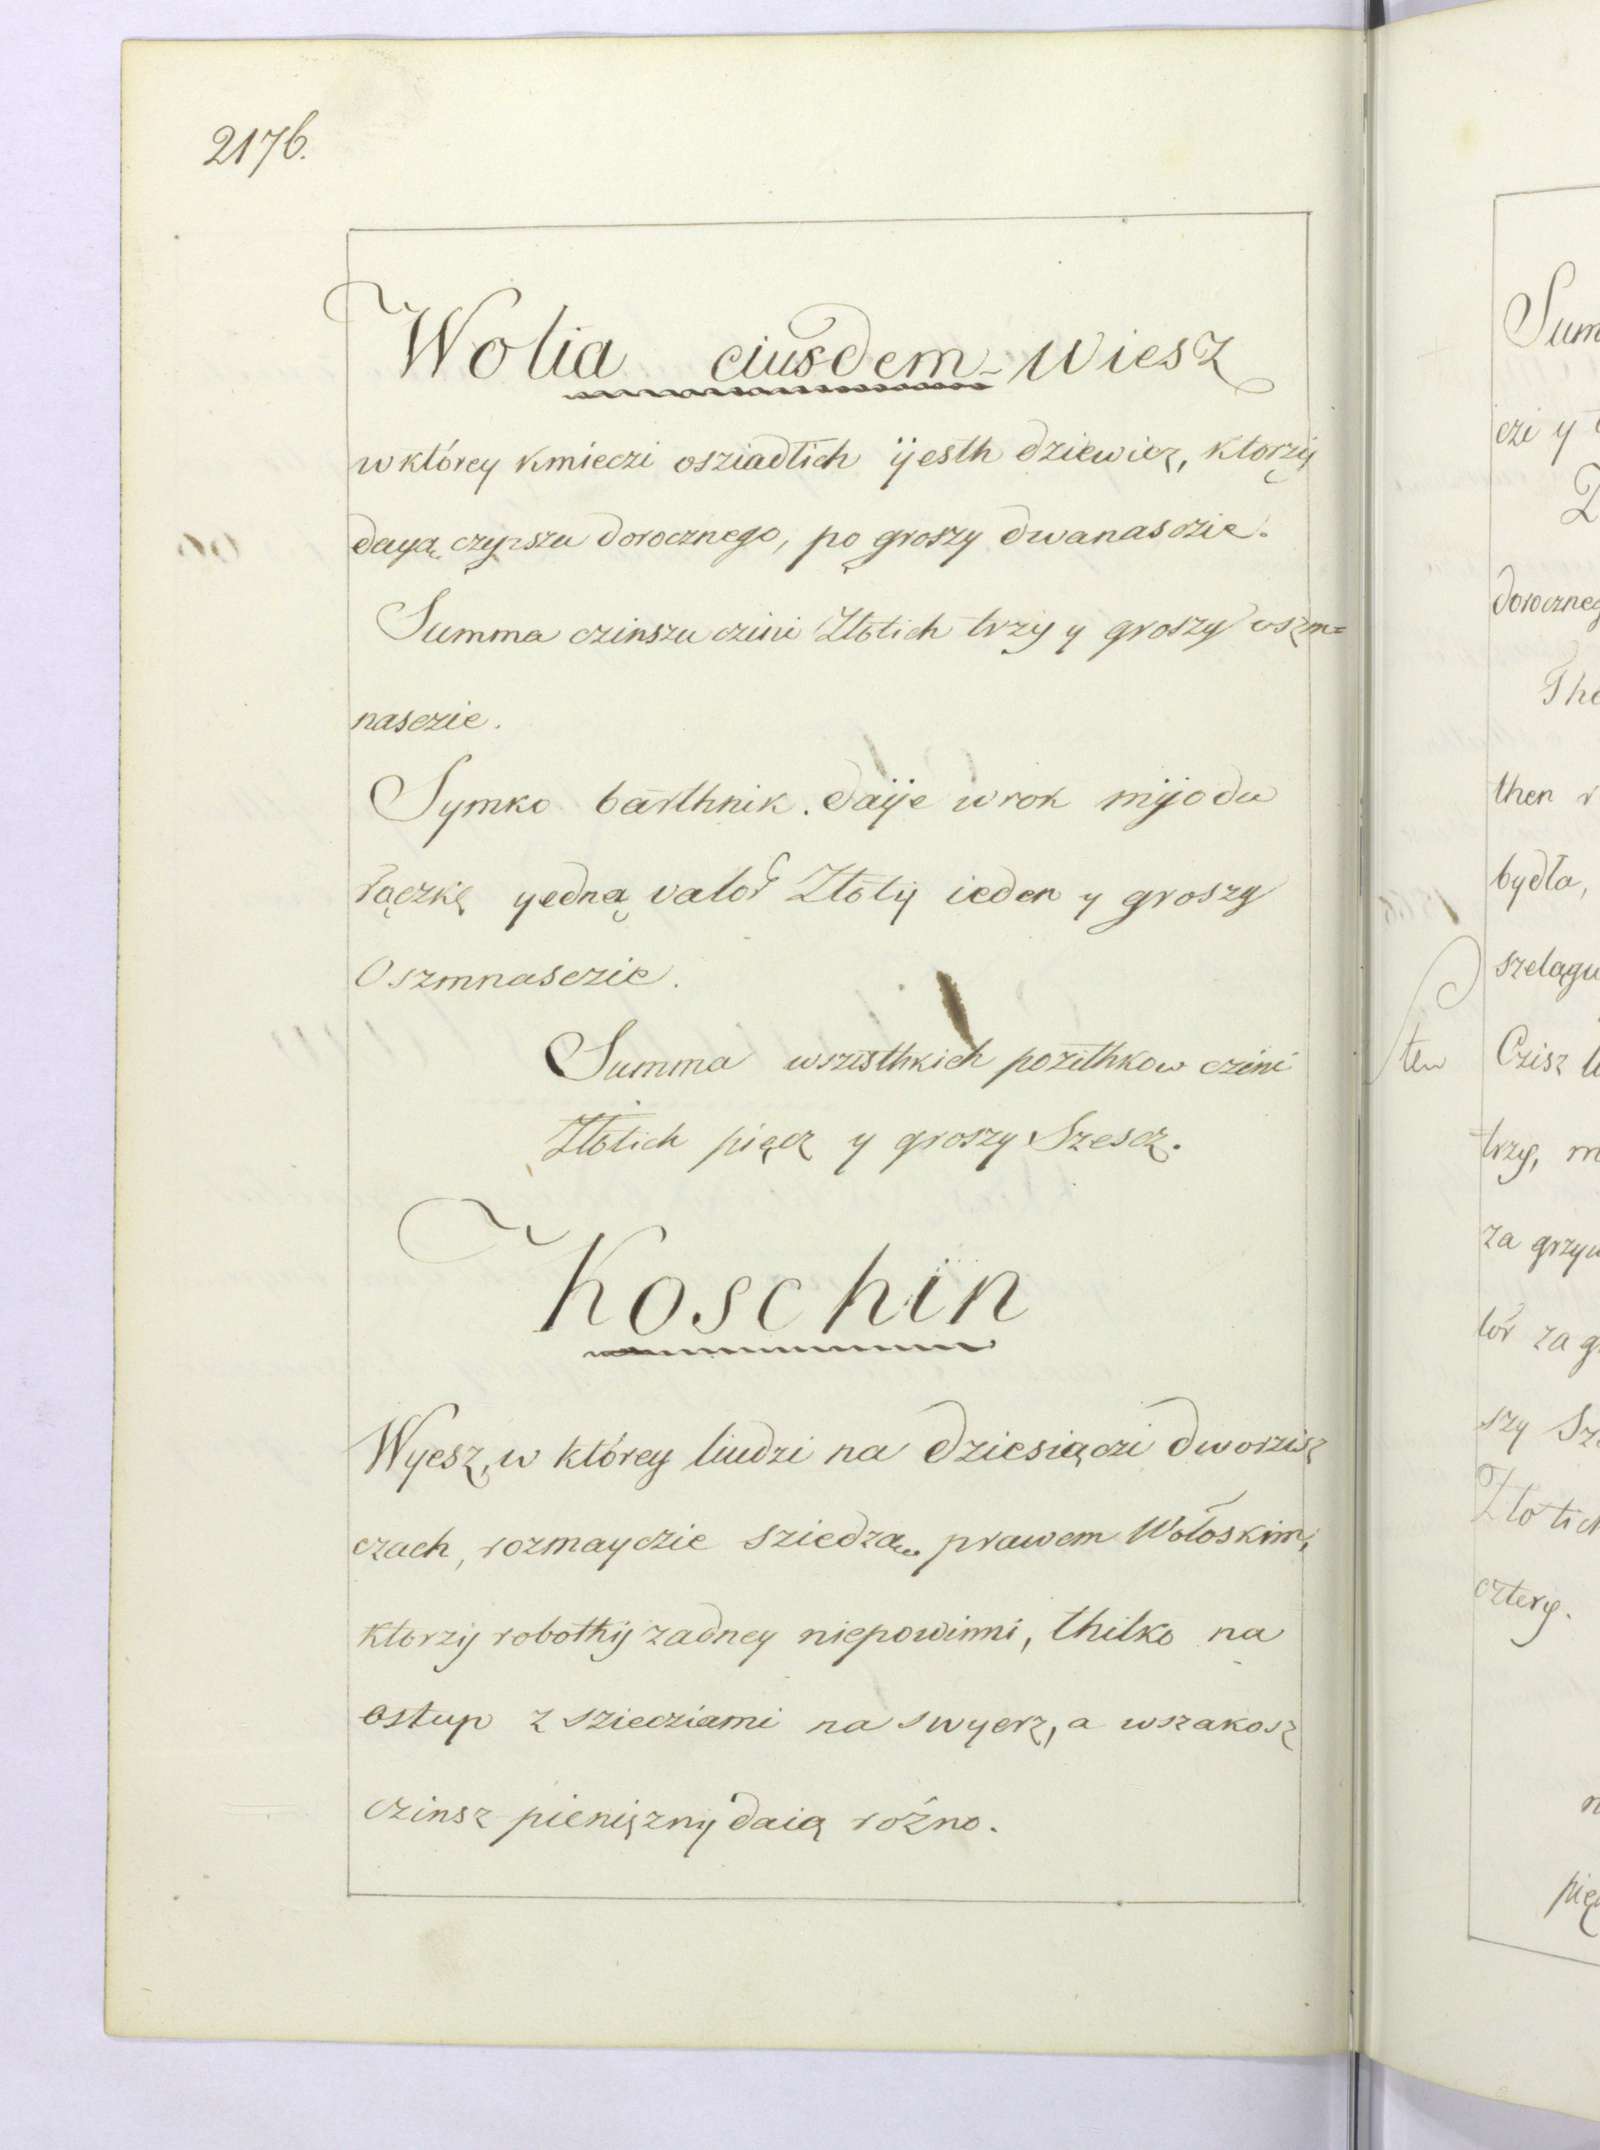 2176.
Wolia eiusdem wiesz
w którey kmieczi osziadlich ÿesth dziewiẹcz, ktorzÿ
dayą czynszu dorocznego, po groszy dwanasczie.
Summa czinszu czini Złotich trzy y groszy oszm=
nasczie.
Symko barthnik. daÿe w rok mÿodu
rączkę yedną valor Złoty ieden y groszy
Oszmnasczie.
Summa wszisthkich pozithkow czini
Złotich piącz y groszy Szescz.
Koschin
Wyesz, w którey liudzi na dziesiączi dworzisz
czach, rozmayczie sziedzą prawem Wołoskim,
ktorzÿ robothÿ zadney niepowinni, thilko na
ostup z sziecziami na swyerz, a wszakosz
czinsz pieniężny daią róźno.
Sum
czi y
doroczneg
The
then r
bydła,
szelągu
ten
Czisz
trzy, m
za grzyw
lór za g
szy Sz
Złotich
cztery.